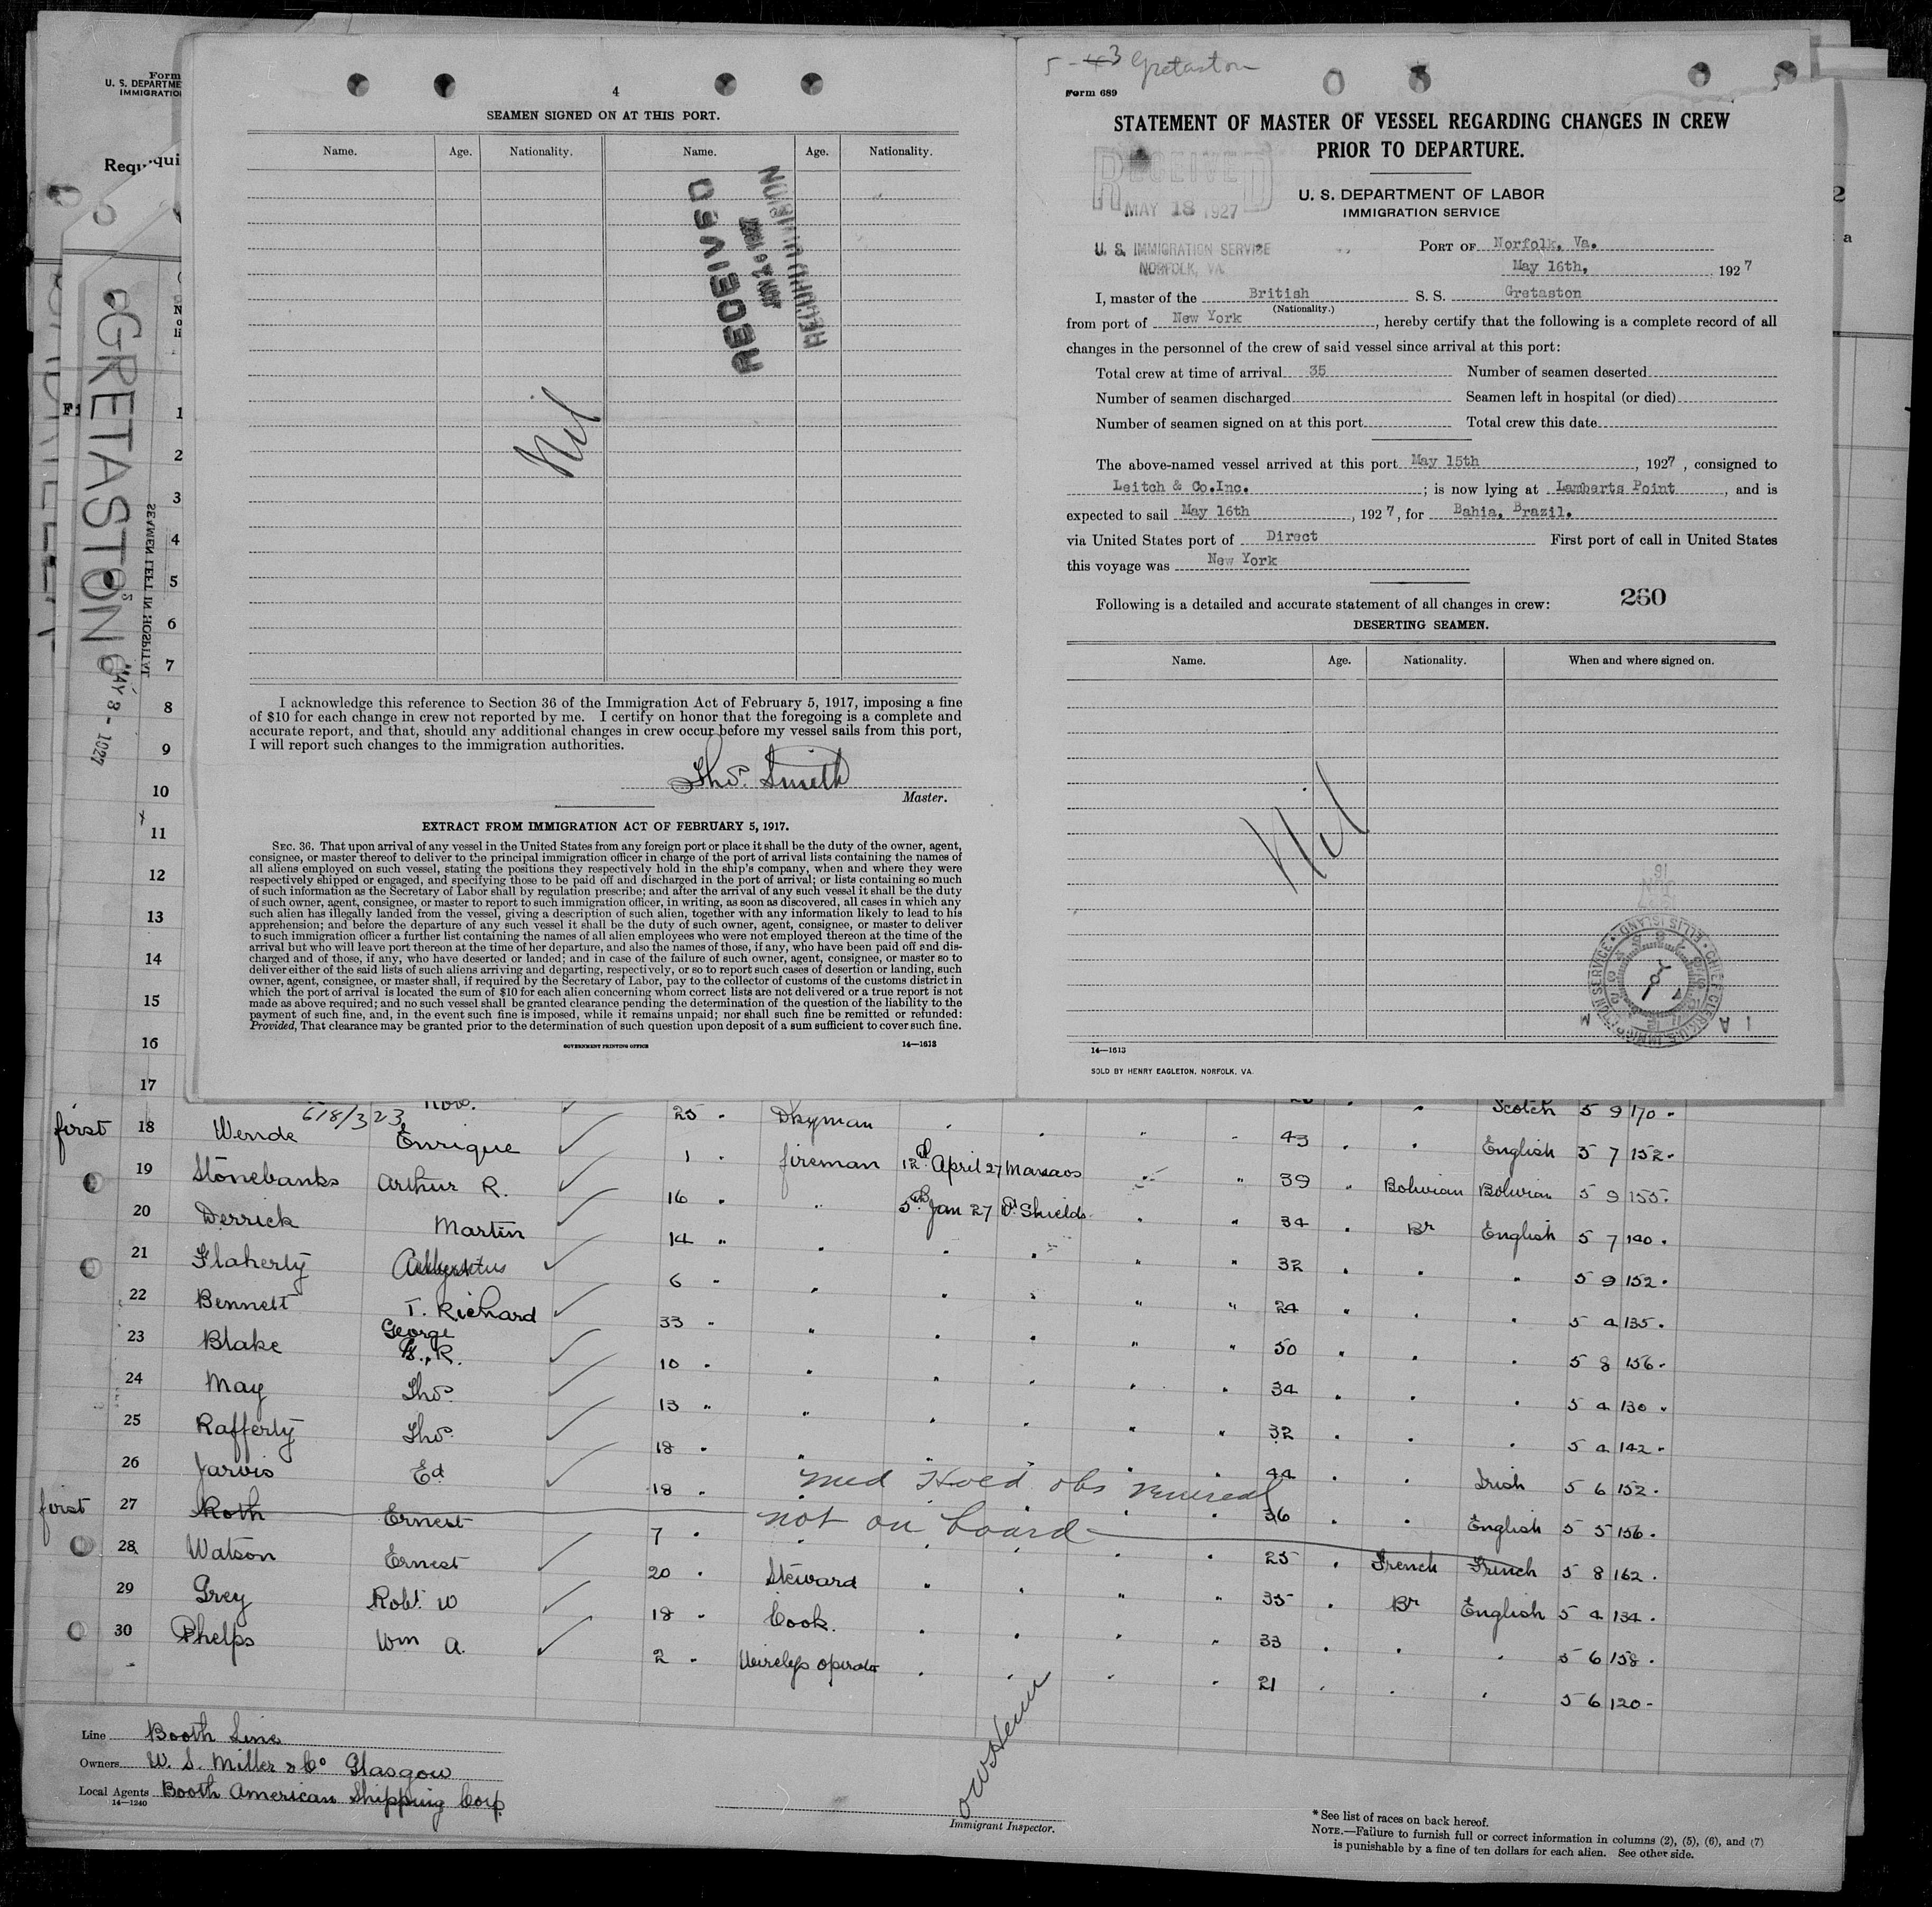 5 - 3 Gretaston
Form
U. S. DEPARTME
IMMIGRATIO
4
SEAMEN SIGNED ON AT THIS PORT.
Name. Age. Nationality. Name. Age. Nationality.
RECEIVED
Nil
I acknowledge this reference to Section 36 of the Immigration Act of February 5, 1917, imposing a fine
of $10 for each change in crew not reported by me. I certify on honor that the foregoing is a complete and
accurate report, and that, should any additional changes in crew occur before my vessel sails from this port,
I will report such changes to the immigration authorities.
Thos. Smith
Master.
EXTRACT FROM IMMIGRATION ACT OF FEBRUARY 5, 1917.
SEC. 36. That upon arrival of any vessel in the United States from any foreign port or place it shall be the duty of the owner, agent,
consignee, or master thereof to deliver to the principal immigration officer in charge of the port of arrival lists containing the names of
all aliens employed on such vessel, stating the positions they respectively hold in the ship's company, when and where they were
respectively shipped or engaged, and specifying those to be paid off and discharged in the port of arrival; or lists containing so much
of such information as the Secretary of Labor shall by regulation prescribe; and after the arrival of any such vessel it shall be the duty
of such owner, agent, consignee, or master to report to such immigration officer, in writing, as soon as discovered, all cases in which any
such alien has illegally landed from the vessel, giving a description of such alien, together with any information likely to lead to his
apprehension; and before the departure of any such vessel it shall be the duty of such owner, agent, consignee, or master to deliver
to such immigration officer a further list containing the names of all alien employees who were not employed thereon at the time of the
arrival but who will leave port thereon at the time of her departure, and also the names of those, if any, who have been paid off and dis-
charged and of those, if any, who have deserted or landed; and in case of the failure of such owner, agent, consignee, or master so to
deliver either of the said lists of such aliens arriving and departing, respectively, or so to report such cases of desertion or landing, such
owner, agent, consignee, or master shall, if required by the Secretary of Labor, pay to the collector of customs of the customs district in
which the port of arrival is located the sum of $10 for each alien concerning whom correct lists are not delivered or a true report is not
made as above required; and no such vessel shall be granted clearance pending the determination of the question of the liability to the
payment of such fine, and, in the event such fine is imposed, while it remains unpaid; nor shall such fine be remitted or refunded:
Provided, That clearance may be granted prior to the determination of such question upon deposit of a sum sufficient to cover such fine.
GOVERNMENT PRINTING OFFICE 14—1613
Form 689
STATEMENT OF MASTER OF VESSEL REGARDING CHANGES IN CREW
PRIOR TO DEPARTURE.
RECEIVED
MAY 18 1927
U. S. IMMIGRATION SERVICE
NORFOLK, VA.
U. S. DEPARTMENT OF LABOR
IMMIGRATION SERVICE
PORT OF Norfolk, Va.
May 16th, 1927
I, master of the British S. S. Gretaston
(Nationality.)
from port of New York, hereby certify that the following is a complete record of all
changes in the personnel of the crew of said vessel since arrival at this port:
Total crew at time of arrival 35 Number of seamen deserted
Number of seamen discharged Seamen left in hospital (or died)
Number of seamen signed on at this port Total crew this date
The above-named vessel arrived at this port May 15th, 1927, consigned to
Leitch & Co.Inc.; is now lying at Lamberts Point, and is
expected to sail May 16th, 1927, for Bahia, Brazil.
via United States port of Direct First port of call in United States
this voyage was New York
Following is a detailed and accurate statement of all changes in crew: 260
DESERTING SEAMEN.
Name. Age. Nationality. When and where signed on.
Nil
14—1613
SOLD BY HENRY EAGLETON, NORFOLK, VA.
GRETASTON
MAY 8 - 1927
SEAMEN LEFT IN HOSPITAL
1
2
3
4
5
6
7
8
9
10
11
12
13
14
15
16
17
25 " Dkyman Scotch 5 9 170
first 18 Wende Enrique 1 " fireman 12th April 27 Manaos 43 English 5 7 152
19 Stonebanks Arthur R. 16 " 5th Jan 27 Shields 39 Bolivian Bolivian 5 9 155
20 Derrick Martin 14 " 34 Br English 5 7 140
21 Flaherty 6 " 32 5 9 152
22 Bennett T. Richard 33 " 24 5 4 135
23 Blake George R. 10 " 50 5 8 156
24 May Thos. 13 " 34 5 4 130
25 Rafferty Thos. 18 " 32 5 4 142
26 Jarvis Ed 18 " med Hold obs venereal 44 Irish 5 6 152
first 27 Roth Ernest 7 " not on board 36 English 5 5 156
28 Watson Ernest 20 " Steward 25 French French 5 8 162
29 Grey Robt. W 18 " Cook. 35 Br English 5 4 134
30 Phelps Wm A. 2 " Wireless operator 33 5 6 158
21 5 6 120
Line Booth Line
Owners W. S. Miller & Co Glasgow
Local Agents Booth American Shipping Corp
14—1240
Immigrant Inspector.
* See list of races on back hereof.
NOTE.—Failure to furnish full or correct information in columns (2), (5), (6), and (7)
is punishable by a fine of ten dollars for each alien. See other side.